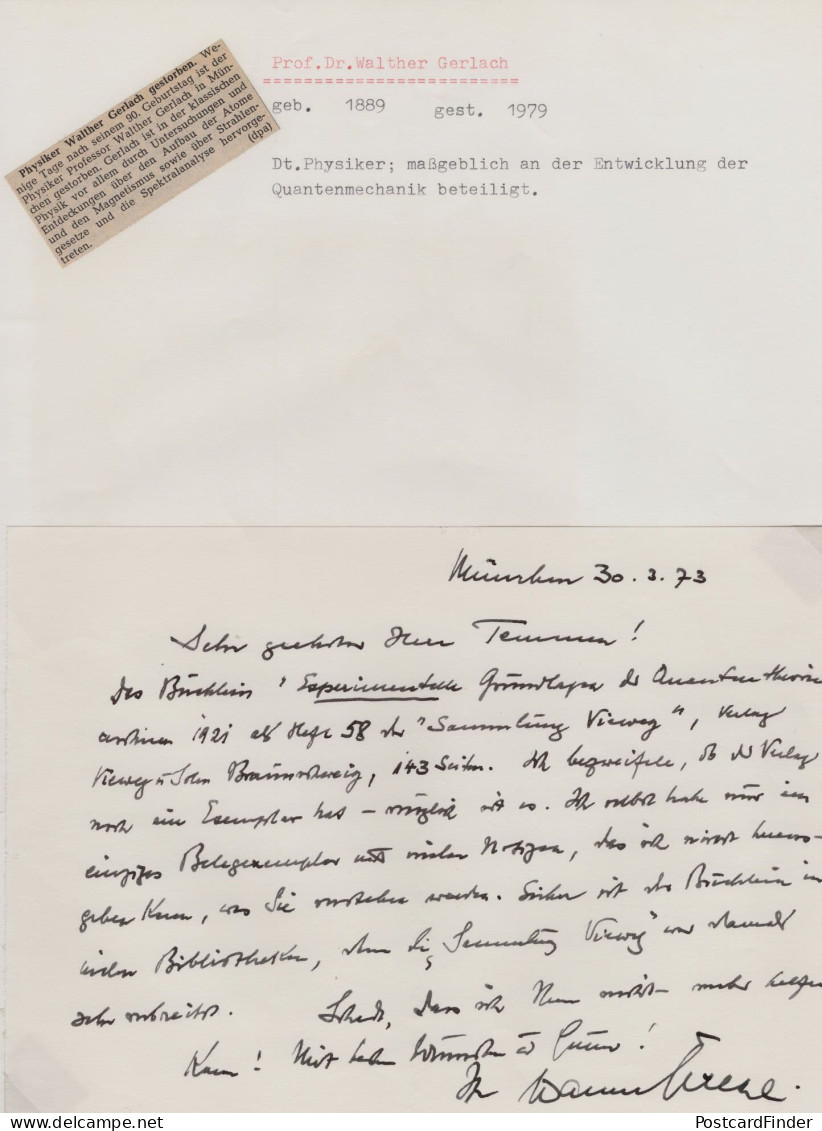 Physiker Walther Gerlach gestorben. We-
nige Tage nach seinem 90. Geburtstag ist der
Physiker Professor Walther Gerlach in Mün-
chen gestorben. Gerlach ist in der klassischen
Physik vor allem durch Untersuchungen und
Entdeckungen über den Aufbau der Atome
und den Magnetismus sowie über Strahlen-
gesetze und die Spektralanalyse hervorge-
treten. (dpa)
Prof.Dr.Walther Gerlach
=========================
geb. 1889 gest. 1979
Dt.Physiker; maßgeblich an der Entwicklung der
Quantenmechanik beteiligt.
München 30.3.73
Sehr geehrter Herr Temmen!
Das Büchlein "Experimentelle Grundlagen der Quantentheorie
erschien 1921 als Heft 58 der "Sammlung Vieweg", Verlag
Vieweg u Sohn Braunschweig, 143 Seiten. Ich bezweifele, ob der Verlag
noch ein Exemplar hat – möglich ist es. Ich selbst habe nur ein
einziges Belegexemplar mit vielen Notizen, das ich nicht heraus-
geben kann, was Sie verstehen werden. Sicher ist das Büchlein in
vielen Bibliotheken, denn die "Sammlung Vieweg" war damals
sehr verbreitet. Schade, dass ich Ihnen nicht mehr helfen
kann! Mit besten Wünschen und Grüssen!
Ihr Walther Gerlach.
PostcardFinder